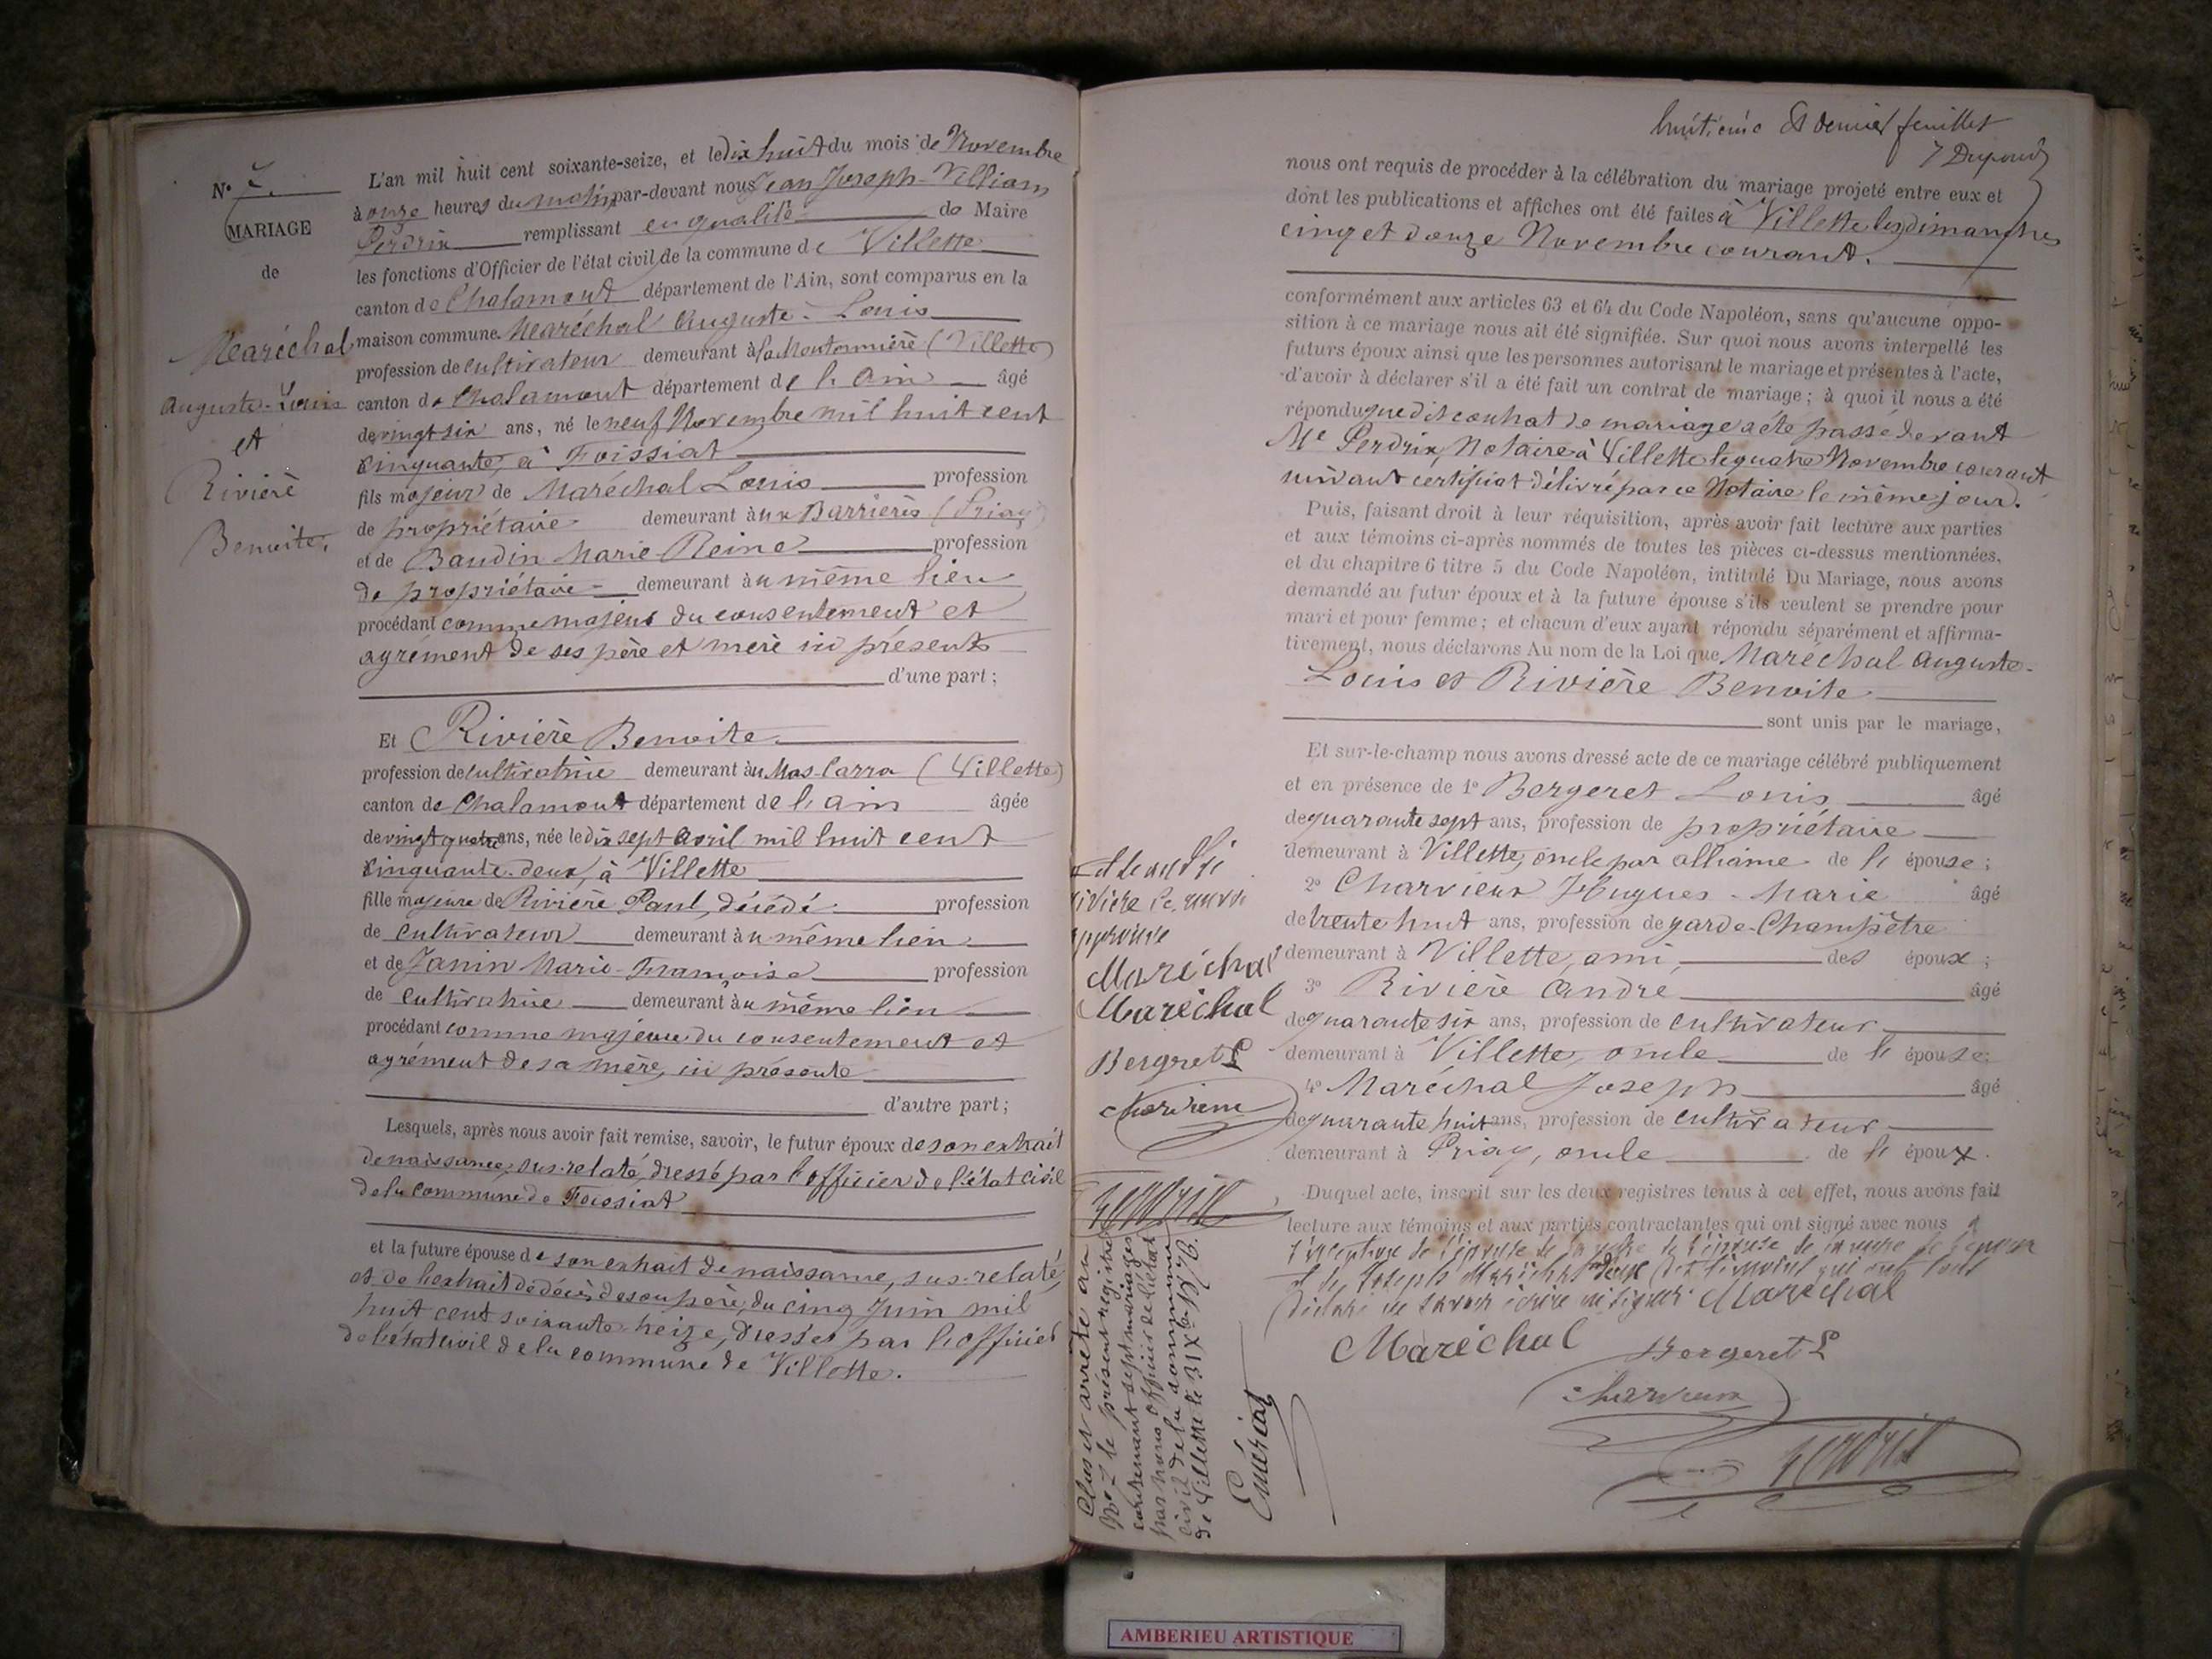 N° 7.
MARIAGE
de
Maréchal
Auguste-Louis
et
Rivière
Benoite.
L'an mil huit cent soixante-seize, et le dix huit du mois de Novembre
à onze heures du matin par-devant nous Jean Joseph-William
Perdrix remplissant en qualité de Maire
les fonctions d'Officier de l'état civil de la commune de Villette
canton de Chalamont département de l'Ain, sont comparus en la
maison commune. Maréchal Auguste-Louis
profession de cultivateur demeurant à la Montonnière (Villette)
canton de Chalamont département de l'Ain âgé
de vingt six ans, né le neuf Novembre mil huit cent
cinquante, à Foissiat
fils majeur de Maréchal Louis profession
de propriétaire demeurant aux Barrières (Priay)
et de Baudin Marie-Reine profession
de propriétaire demeurant au même lieu
procédant comme majeur du consentement et
agrément de ses père et mère ici présents
d'une part ;
Et Rivière Benoite
profession de cultivatrice demeurant au Mas-Carra (Villette)
canton de Chalamont département de l'Ain âgée
de vingt quatre ans, née le dix sept Avril mil huit cent
cinquante-deux, à Villette
fille majeure de Rivière Paul, décédé profession
de cultivateur demeurant au même lieu
et de Janin Marie-Françoise profession
de cultivatrice demeurant au même lieu
procédant comme majeure du consentement et
agrément de sa mère, ici présente
d'autre part ;
Lesquels, après nous avoir fait remise, savoir, le futur époux de son extrait
de naissance, sus-relaté, dressé par l'officier de l'état civil
de la commune de Foissiat
et la future épouse de son extrait de naissance, sus-relaté,
et de l'extrait de décès de son père, du cinq Juin mil
huit cent soixante-treize, dressés par l'officier
de l'état civil de la commune de Villette.
huitième et dernier feuillet
nous ont requis de procéder à la célébration du mariage projeté entre eux et
dont les publications et affiches ont été faites à Villette les dimanches
cinq et douze Novembre courant.
conformément aux articles 63 et 64 du Code Napoléon, sans qu'aucune oppo-
sition à ce mariage nous ait été signifiée. Sur quoi nous avons interpellé les
futurs époux ainsi que les personnes autorisant le mariage et présentes à l'acte,
d'avoir à déclarer s'il a été fait un contrat de mariage ; à quoi il nous a été
répondu que dit contrat de mariage a été passé devant
Me Perdrix, Notaire à Villette le quatre Novembre courant
suivant certificat délivré par ce Notaire le même jour.
Puis, faisant droit à leur réquisition, après avoir fait lecture aux parties
et aux témoins ci-après nommés de toutes les pièces ci-dessus mentionnées,
et du chapitre 6 titre 5 du Code Napoléon, intitulé Du Mariage, nous avons
demandé au futur époux et à la future épouse s'ils veulent se prendre pour
mari et pour femme ; et chacun d'eux ayant répondu séparément et affirma-
tivement, nous déclarons Au nom de la Loi que Maréchal Auguste-
Louis et Rivière Benoite
sont unis par le mariage,
Et sur-le-champ nous avons dressé acte de ce mariage célébré publiquement
et en présence de 1° Bergeret Louis âgé
de quarante sept ans, profession de propriétaire
demeurant à Villette, oncle par alliance de l'épouse ;
2° Charvieux Hugues-Marie âgé
de trente huit ans, profession de garde-Champêtre
demeurant à Villette, ami, des époux ;
3° Rivière André âgé
de quarante six ans, profession de cultivateur
demeurant à Villette, oncle de l'épouse ;
4° Maréchal Joseph âgé
de quarante huit ans, profession de cultivateur
demeurant à Priay, oncle de l'époux.
Duquel acte, inscrit sur les deux registres tenus à cet effet, nous avons fait
lecture aux témoins et aux parties contractantes qui ont signé avec nous
à l'exception de l'épouse de la mère de l'épouse de la mère de l'époux
et de Joseph Maréchal deux des témoins qui ont tous
déclaré ne savoir écrire ni signer. Maréchal
Maréchal Bergeret L
Charvieux
Perdrix
Maréchal
Maréchal
Bergeret L
Charvieux
Perdrix
Clos et arrêté au
N° 7 le présent registre
contenant sept mariages
par nous officier de l'état
civil de la commune
de Villette le 31 Xbre 1876.
AMBERIEU ARTISTIQUE